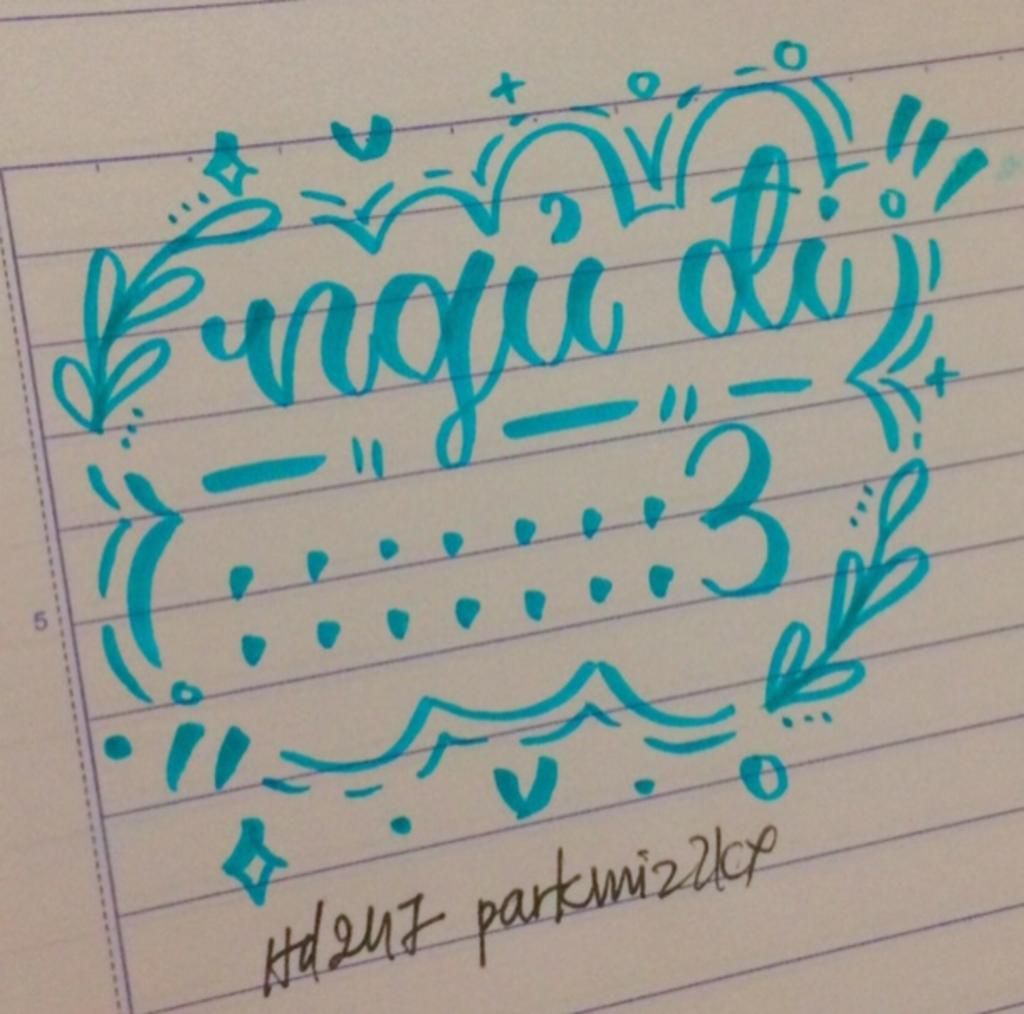 ngủ đi
:::::::3
5
Hd247 parkmizzkp